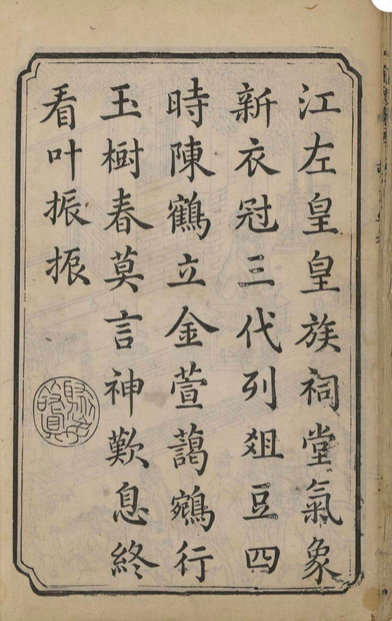 江左皇皇族祠堂氣象
新衣冠三代列爼豆四
時陳鶴立金萱藹鵷行
玉樹春莫言神歎息終
看叶振振